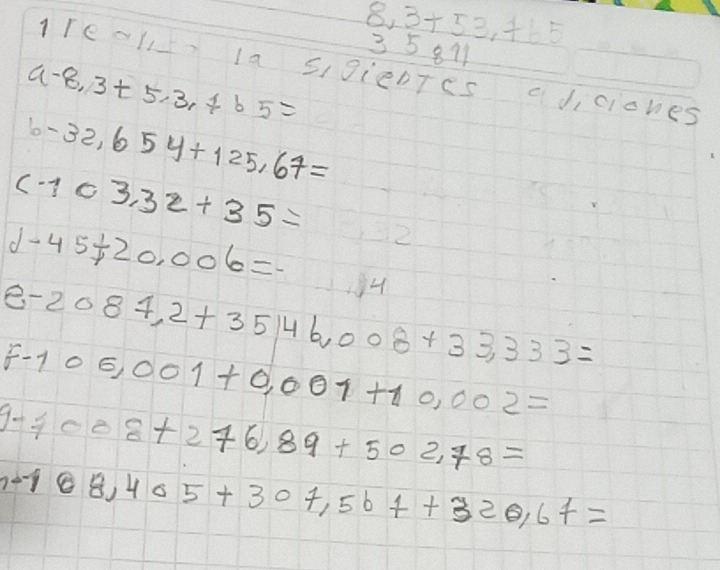 8,3+53,765
3 5 811
1 la sigientes adiciones
a-8,3+53,765=
b-32,654+125,67=
c-103,32+35=
d-45+20,006=
e-2087,2+3546,008+33,333=
f-106,001+0,001+10,002=
g-7008+276,89+502,78=
h-108,405+307,567+320,67=